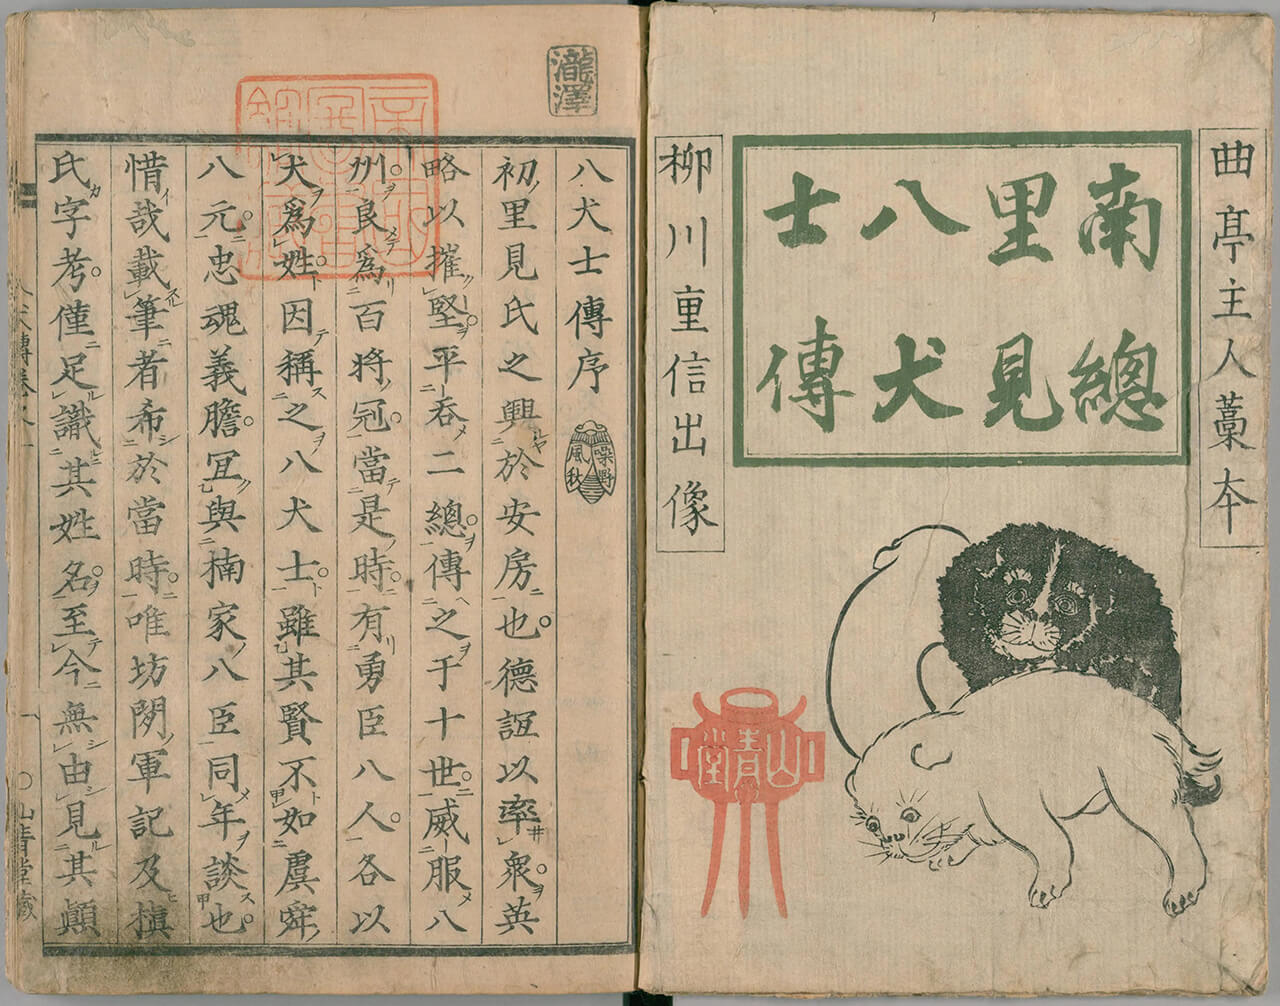 曲亭主人藁本
南總
里見
八犬
士傳
柳川重信出像
山青堂
瀧澤
八犬士傳序
噪野風秋
初里見氏之興於安房也。德誼以率衆。英
略以摧堅。平呑二總。傳之于十世。威服八
州。良爲百將冠。當是時。有勇臣八人。各以
犬爲姓。因稱之八犬士。雖其賢不如虞舜
八元。忠魂義膽。宜與楠家八臣同年談也。
惜哉載筆者希於當時。唯坊閒軍記及槙
氏字考。僅足識其姓名。至今無由見其顚
山青堂藏